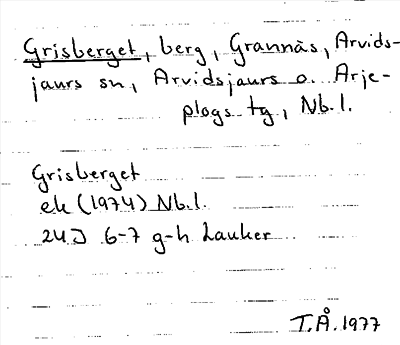 Grisberget, berg, Grannäs, Arvids-
jaurs sn, Arvidsjaurs o. Arje-
plogs tg, Nb. l.
Grisberget
ek (1974) Nb.l.
24J 6-7 g-h Lauker
T.Å. 1977